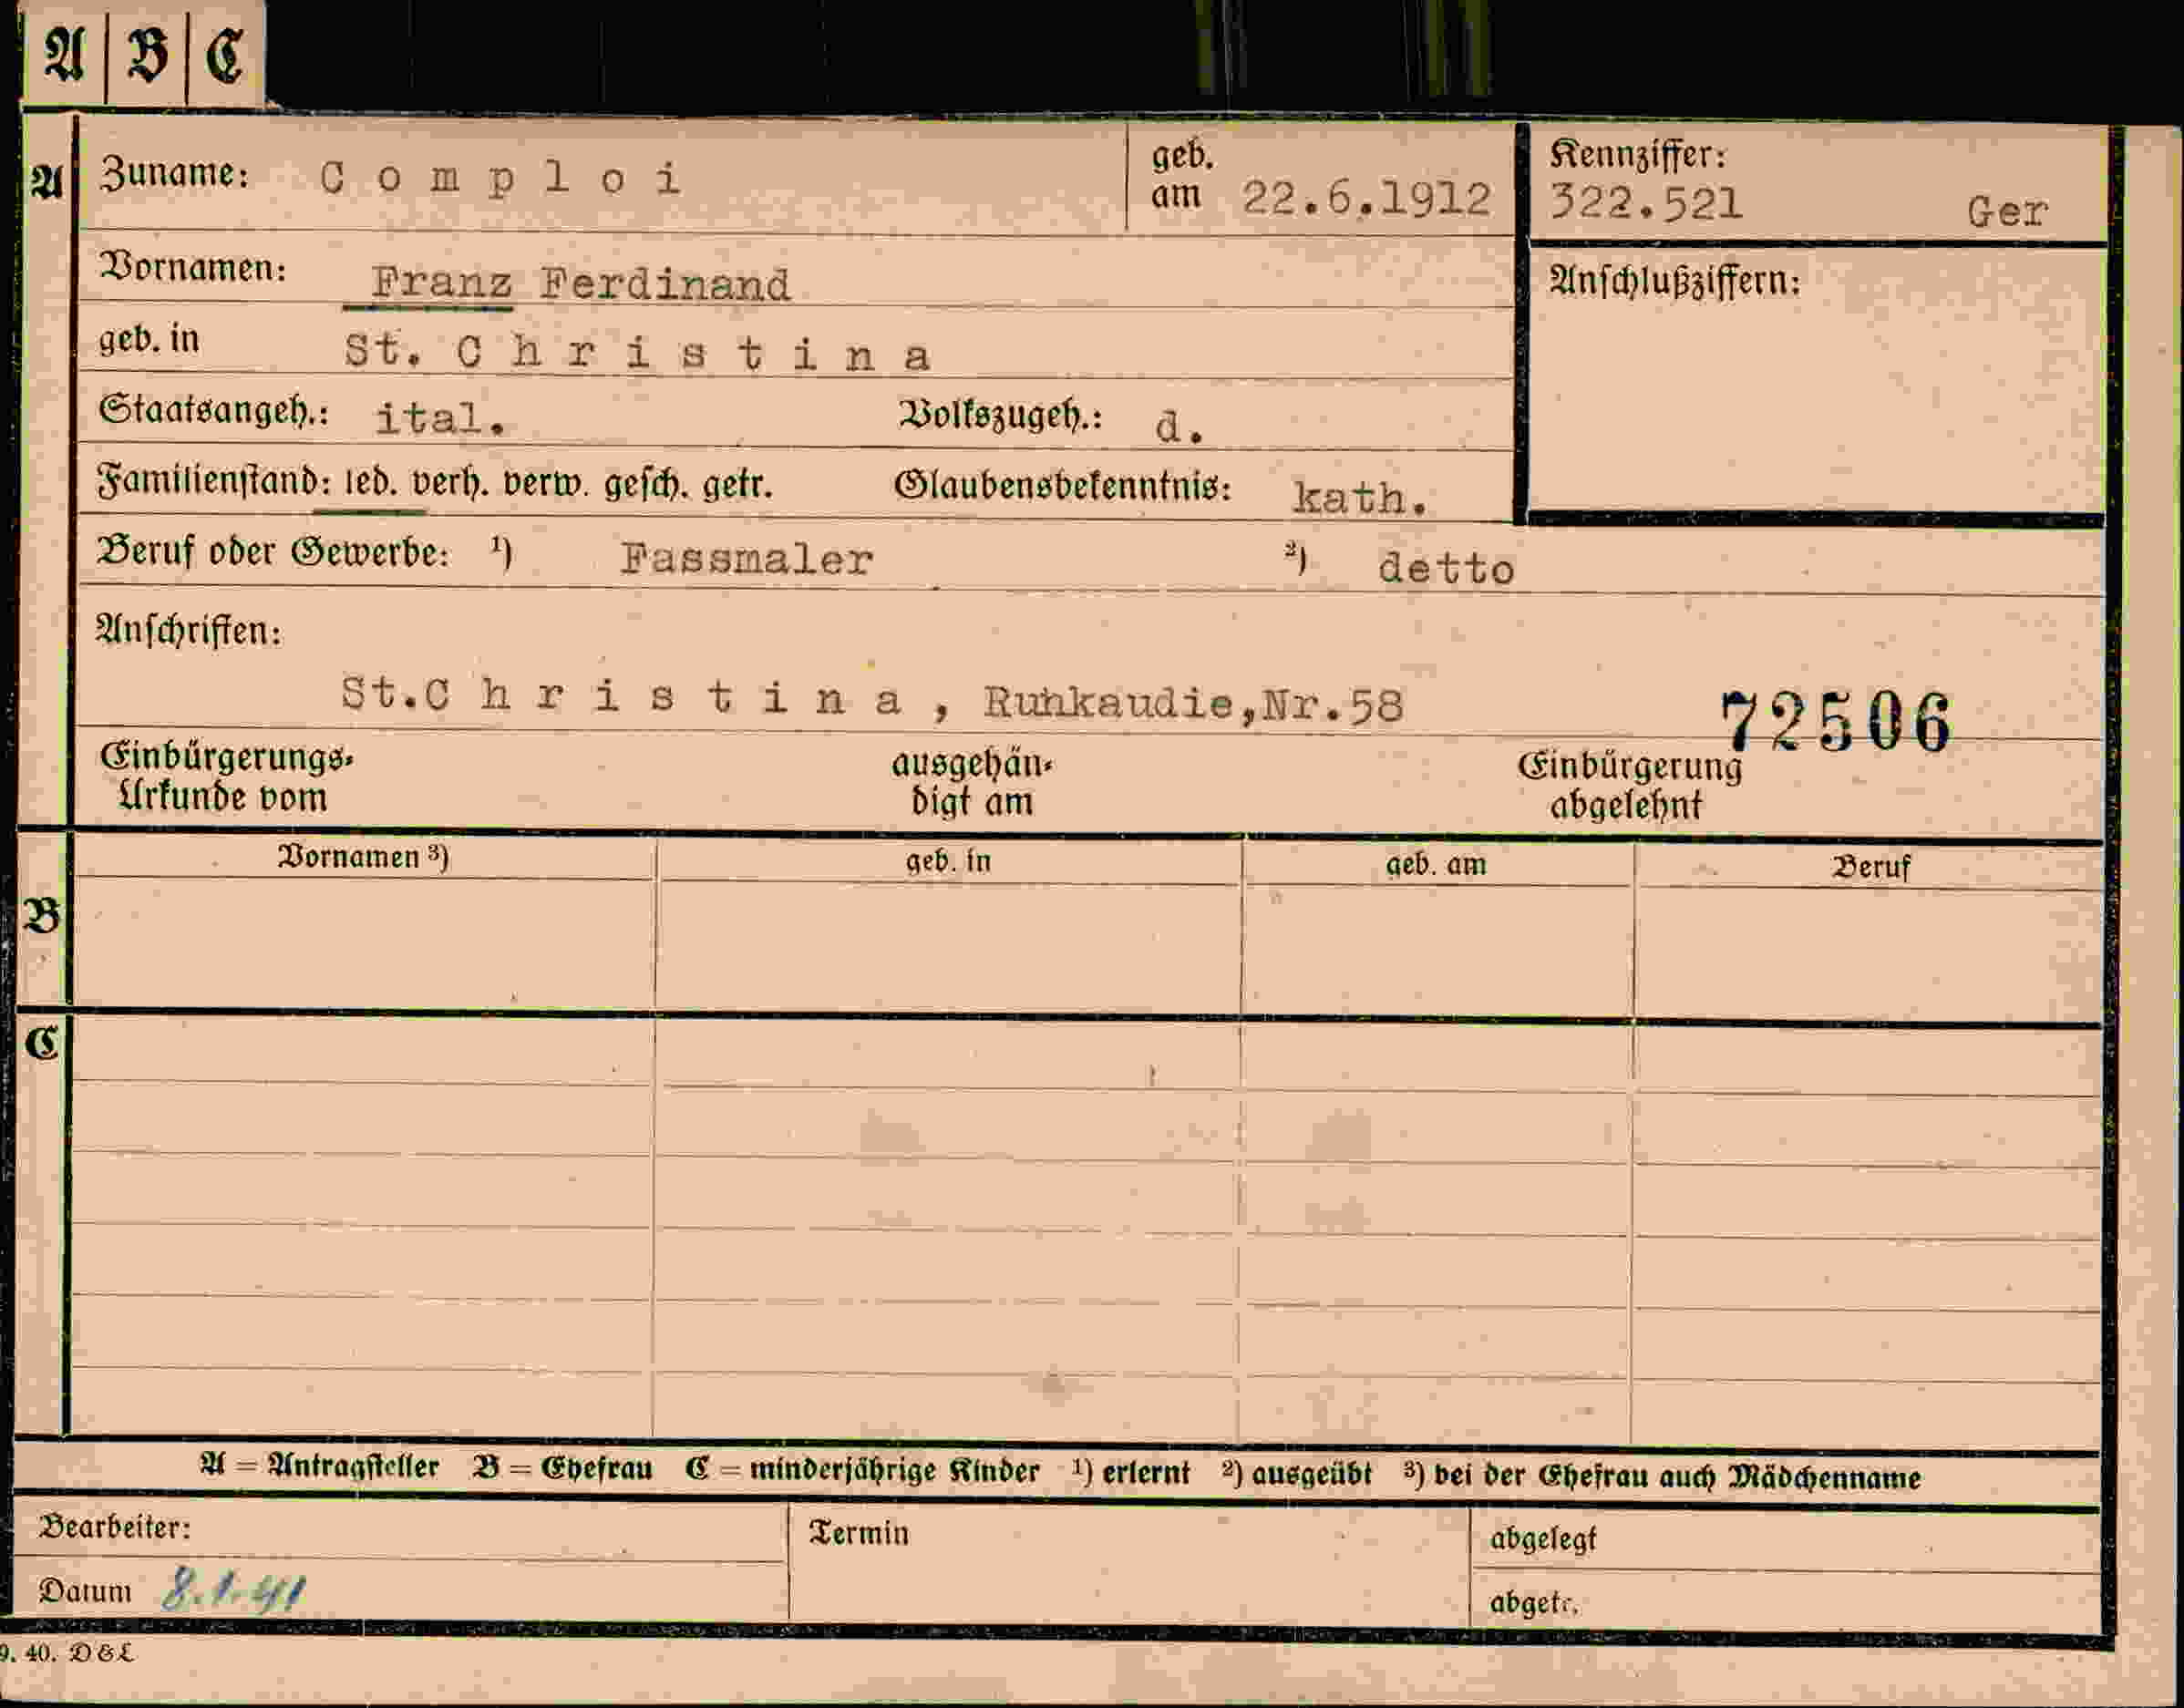 A | B | C
A Zuname: C o m p l o i geb. am 22.6.1912 Kennziffer: 322.521 Ger
Vornamen: Franz Ferdinand Anschlußziffern:
geb. in St. C h r i s t i n a
Staatsangeh.: ital. Volkszugeh.: d.
Familienstand: led. verh. verw. gesch. getr. Glaubensbekenntnis: kath.
Beruf oder Gewerbe: ¹) Fassmaler ²) detto
Anschriften:
St.C h r i s t i n a , Runkaudie,Nr.58 72506
Einbürgerungs-Urkunde vom ausgehändigt am Einbürgerung abgelehnt
Vornamen ³) geb. in geb. am Beruf
B
C
A = Antragsteller B = Ehefrau C = minderjährige Kinder ¹) erlernt ²) ausgeübt ³) bei der Ehefrau auch Mädchenname
Bearbeiter: Termin abgelegt
Datum 8.1.41 abgetr.
9. 40. D&L